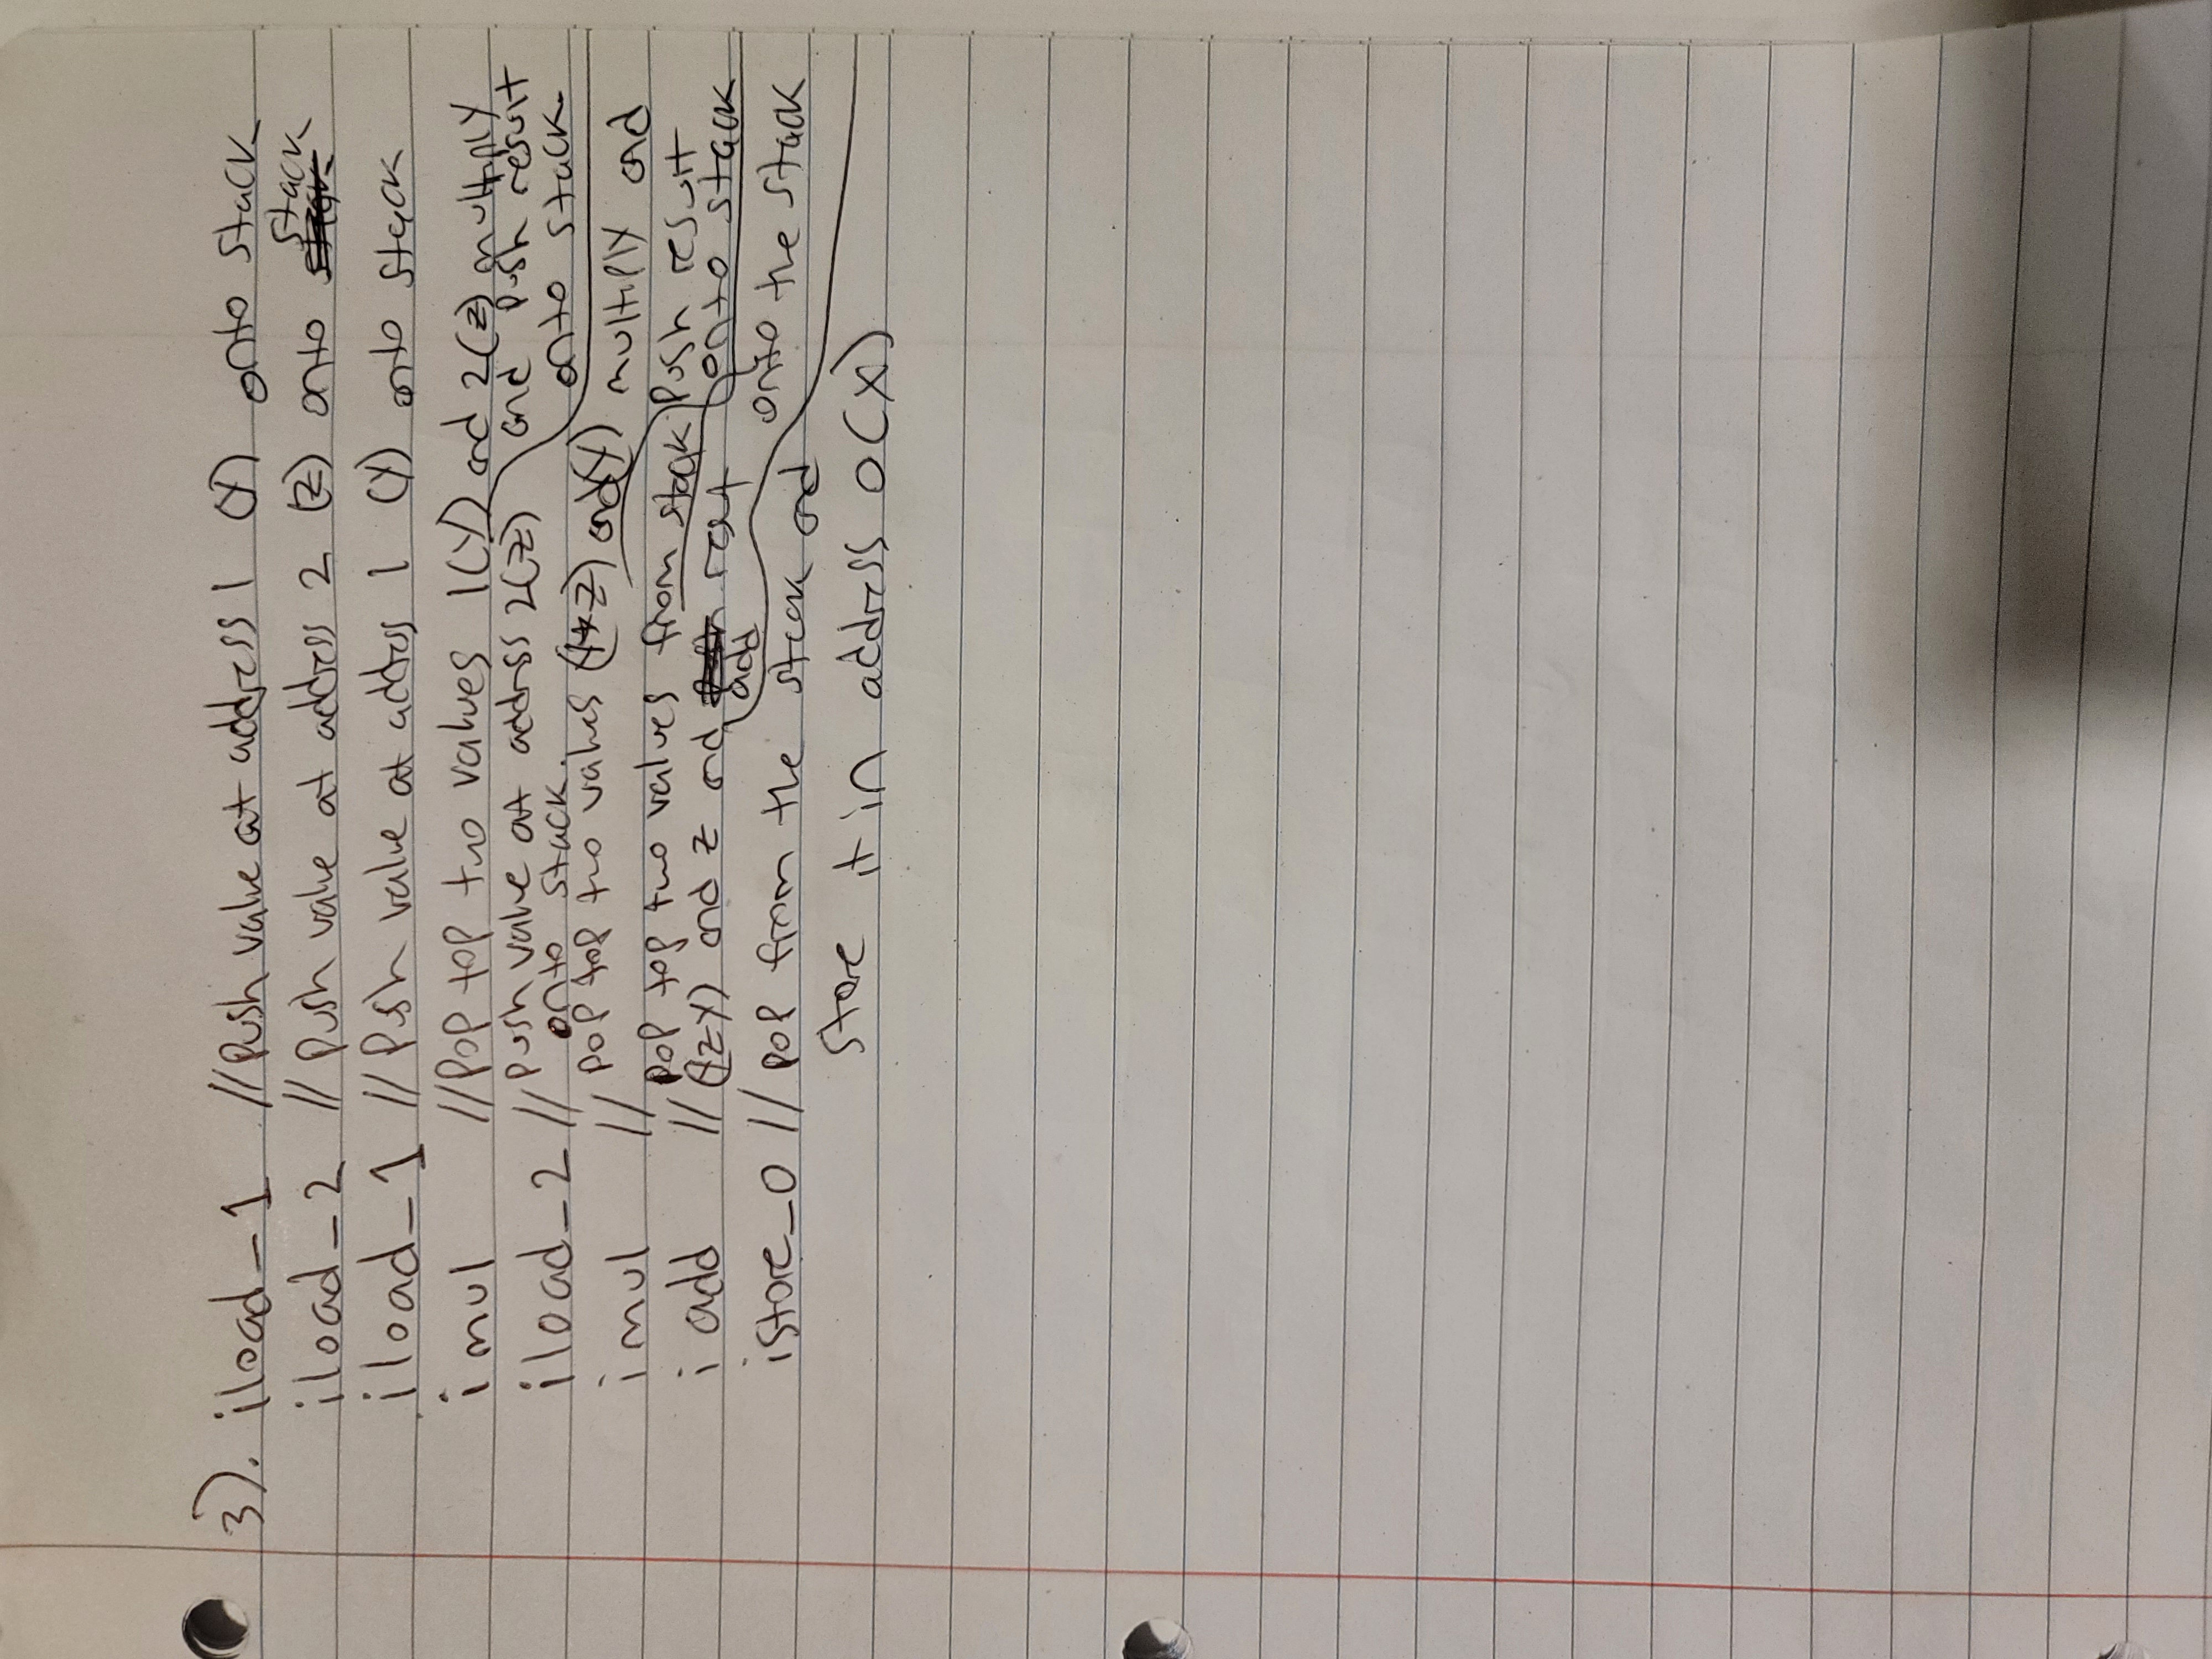 3). iload_1 // Push value at address 1 (Y) onto stack
iload_2 // Push value at address 2 (Z) onto stack
iload_1 // Push value at address 1 (Y) onto stack
imul // Pop top two values 1(Y) and 2(Z) multiply and Push result onto stack
iload_2 // Push value at address 2(Z) onto stack.
imul // Pop top two values (Y*Z) and (Y) multiply and Push result onto stack
iadd // Pop top two values from stack (YZY) and Z and add onto the stack
istore_0 // Pop from the stack and
store it in address 0(X)